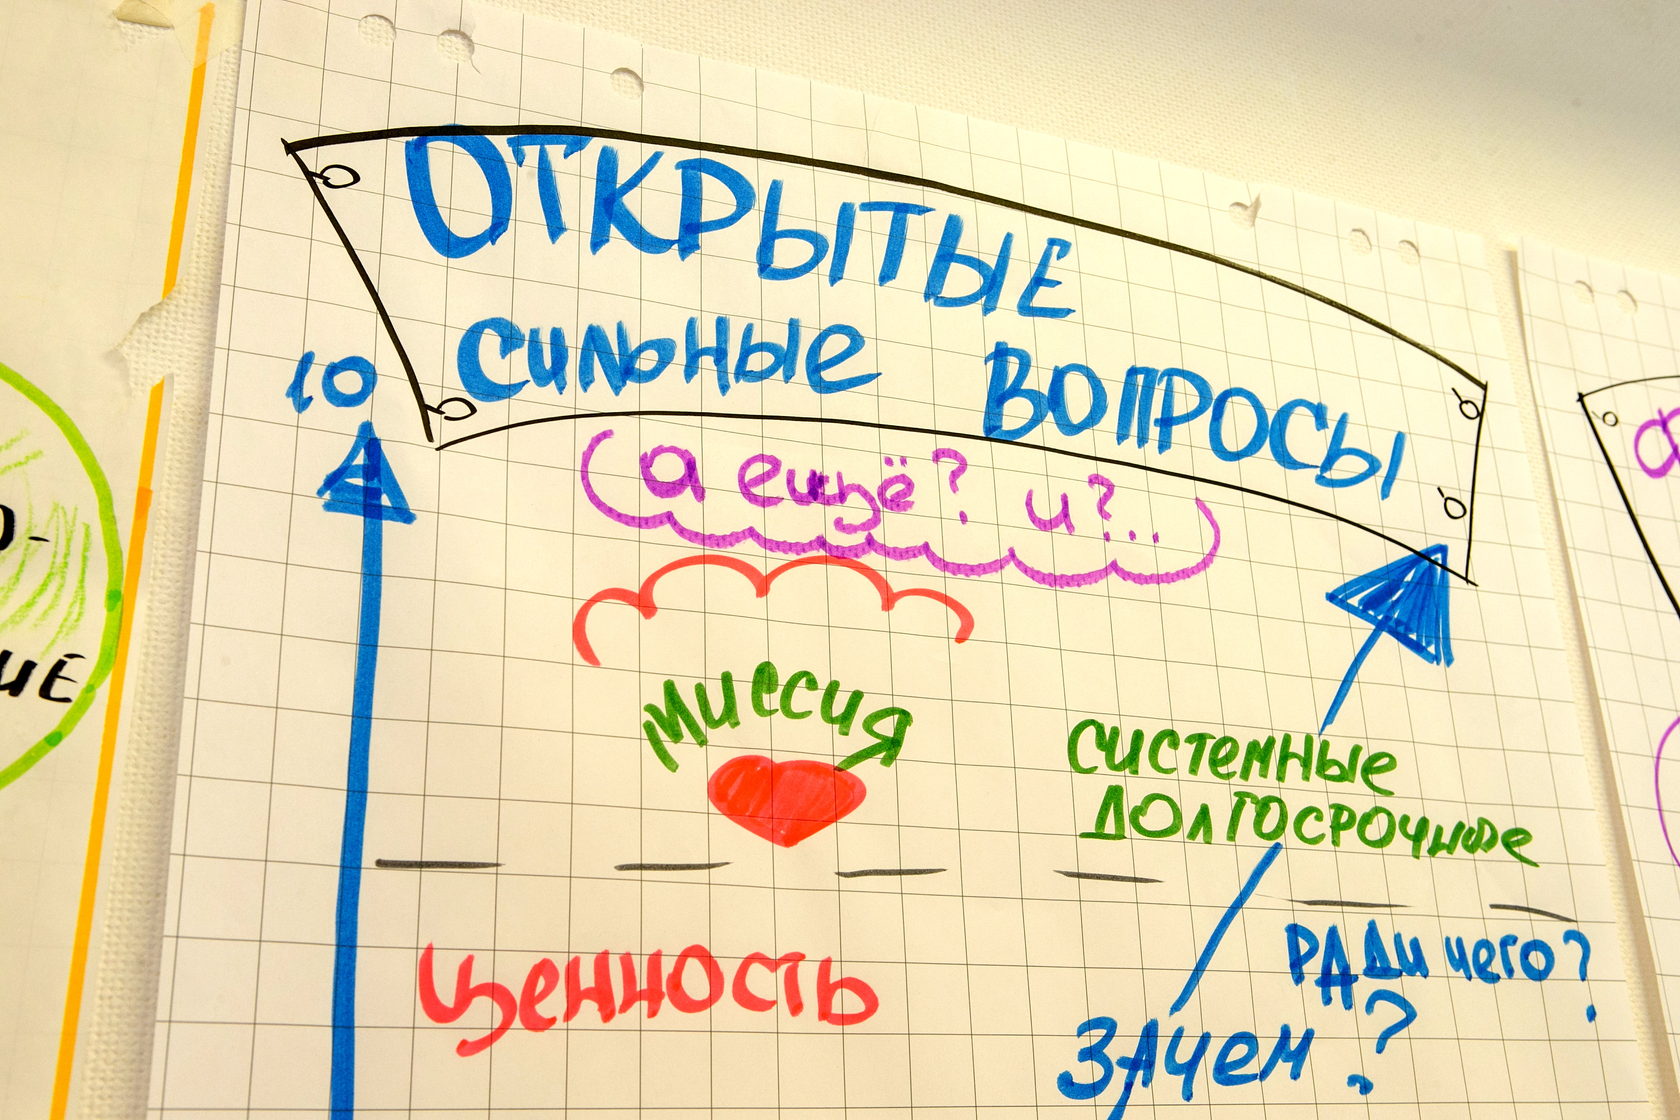 ОТКРЫТЫЕ
СИЛЬНЫЕ ВОПРОСЫ
10
(а ещё? и?...)
МИССИЯ
СИСТЕМНЫЕ
ДОЛГОСРОЧНЫЕ
ЦЕННОСТЬ
РАДИ чего?
ЗАЧЕМ?